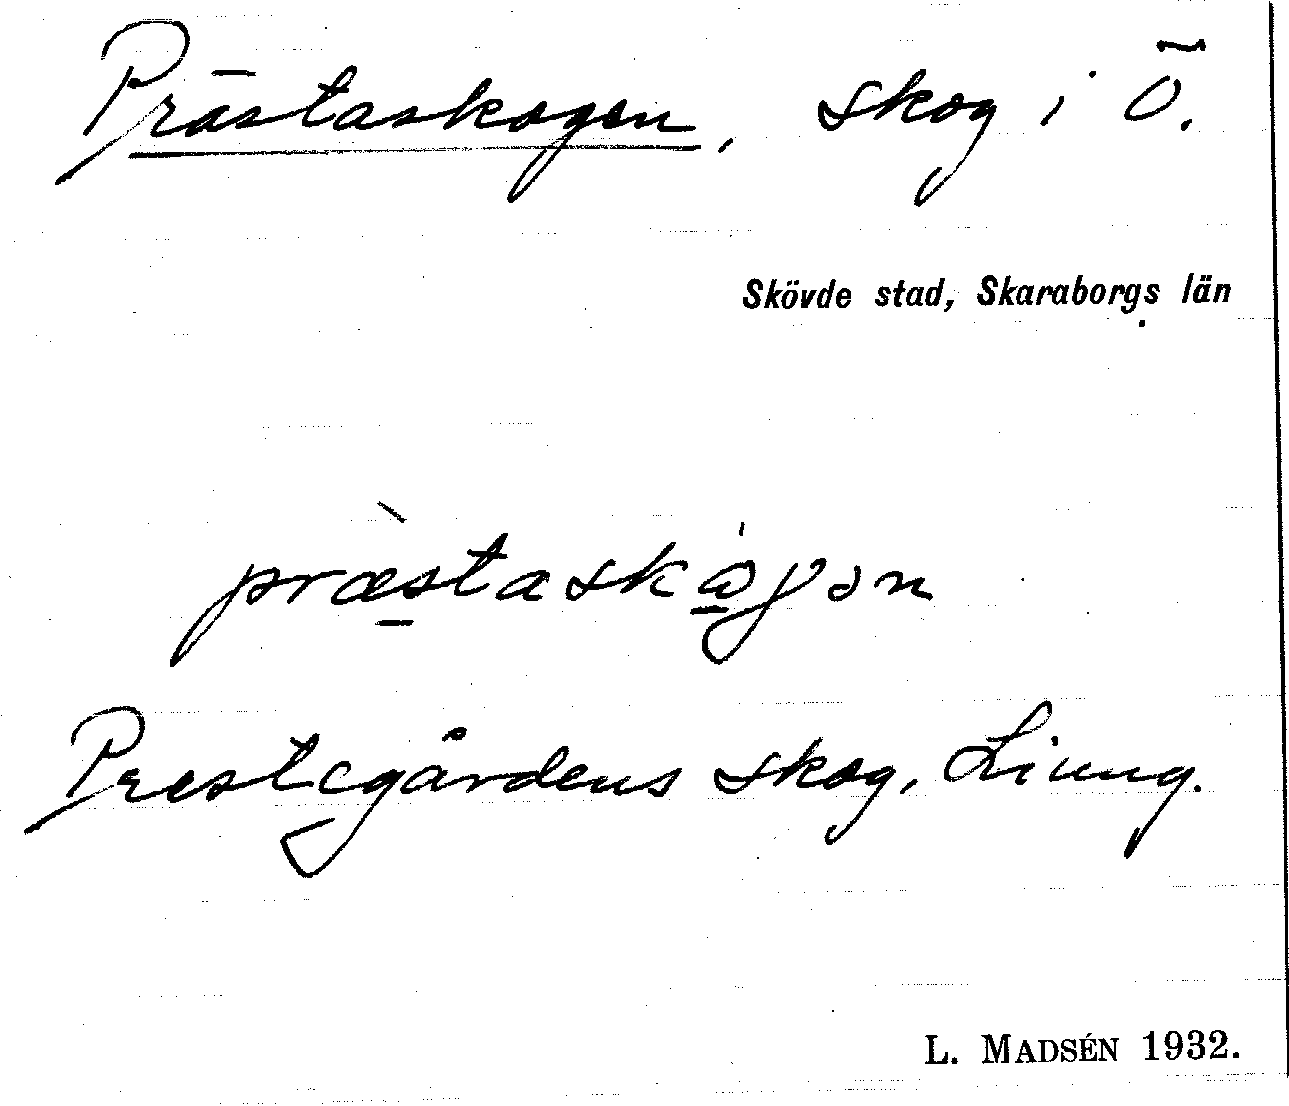 Prästaskogen, skog i Ö.
Skövde stad, Skaraborgs län
præ̱̀staskǻ̱gən
Prestegårdens skog, Liung.
L. MADSÉN 1932.